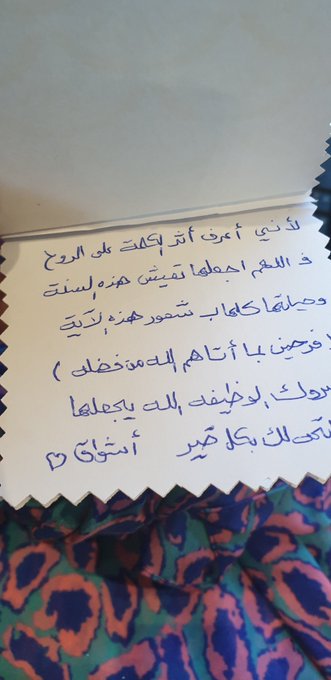 لأني أعرف أثر الكلمة على الروح
ف اللهم اجعلها تعيش هذه السنة
وحياتها كلها ب شعور هذه الآية
فرحين بما أتاهم الله من فضله )
مبروك الوظيفه الله يجعلها
تتحول لك بكل خير أشواق ♡